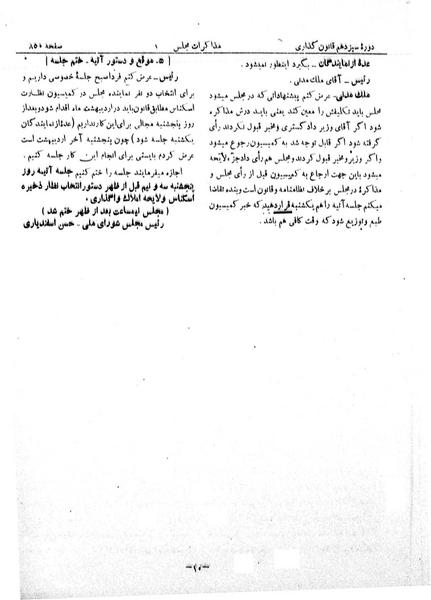 دورهٔ سیزدهم قانون گذاری
مذاکرات مجلس
۱
صفحه ۸۵۰
عدهٔ از نمایندگان ــ بگیرد اینطور نمیشود .
رئیس ــ آقای ملک مدنی .
ملک مدنی ــ عرض کنم پیشنهاداتی که در مجلس میشود
مجلس باید تکلیفش را معین کند یعنی باید درش مذاکره
شود اگر آقای وزیر دادگستری و مخبر قبول نکردند رأی
گرفته شود اگر قابل توجه شد به کمیسیون رجوع میشود
و اگر وزیر و مخبر قبول کردند و مجلس هم رأی داد جزء لایحه
میشود باین جهت ارجاع به کمیسیون قبل از رأی مجلس و
مذاکرهٔ در مجلس بر خلاف نظامنامه و قانون است و بنده تقاضا
میکنم جلسه آتیه را هم یکشنبه قرار دهید که خبر کمیسیون
طبع و توزیع شود که وقت کافی هم باشد .
[ ۵ ـ موقع و دستور آتیه ـ ختم جلسه ]
رئیس ــ عرض کنم فردا صبح جلسهٔ خصوصی داریم و
برای انتخاب دو نفر نماینده مجلس در کمیسیون نظارت
اسکناس مطابق قانون، باید در اردیبهشت ماه اقدام شود و بعد از
روز پنجشنبه مجالی برای این کار نداریم ( عدهٔ از نمایندگان
یکشنبه جلسه شود ) چون پنجشنبه آخر اردیبهشت است
عرض کردم بایستی برای انجام این کار جلسه کنیم .
اجازه میفرمایند جلسه را ختم کنیم جلسه آتیه روز
پنجشنبه سه و نیم قبل از ظهر دستور انتخاب نظار ذخیره
اسکناس و لایحه املاک واگذاری .
( مجلس نیمساعت بعد از ظهر ختم شد )
رئیس مجلس شورای ملی ـ حسن اسفندیاری